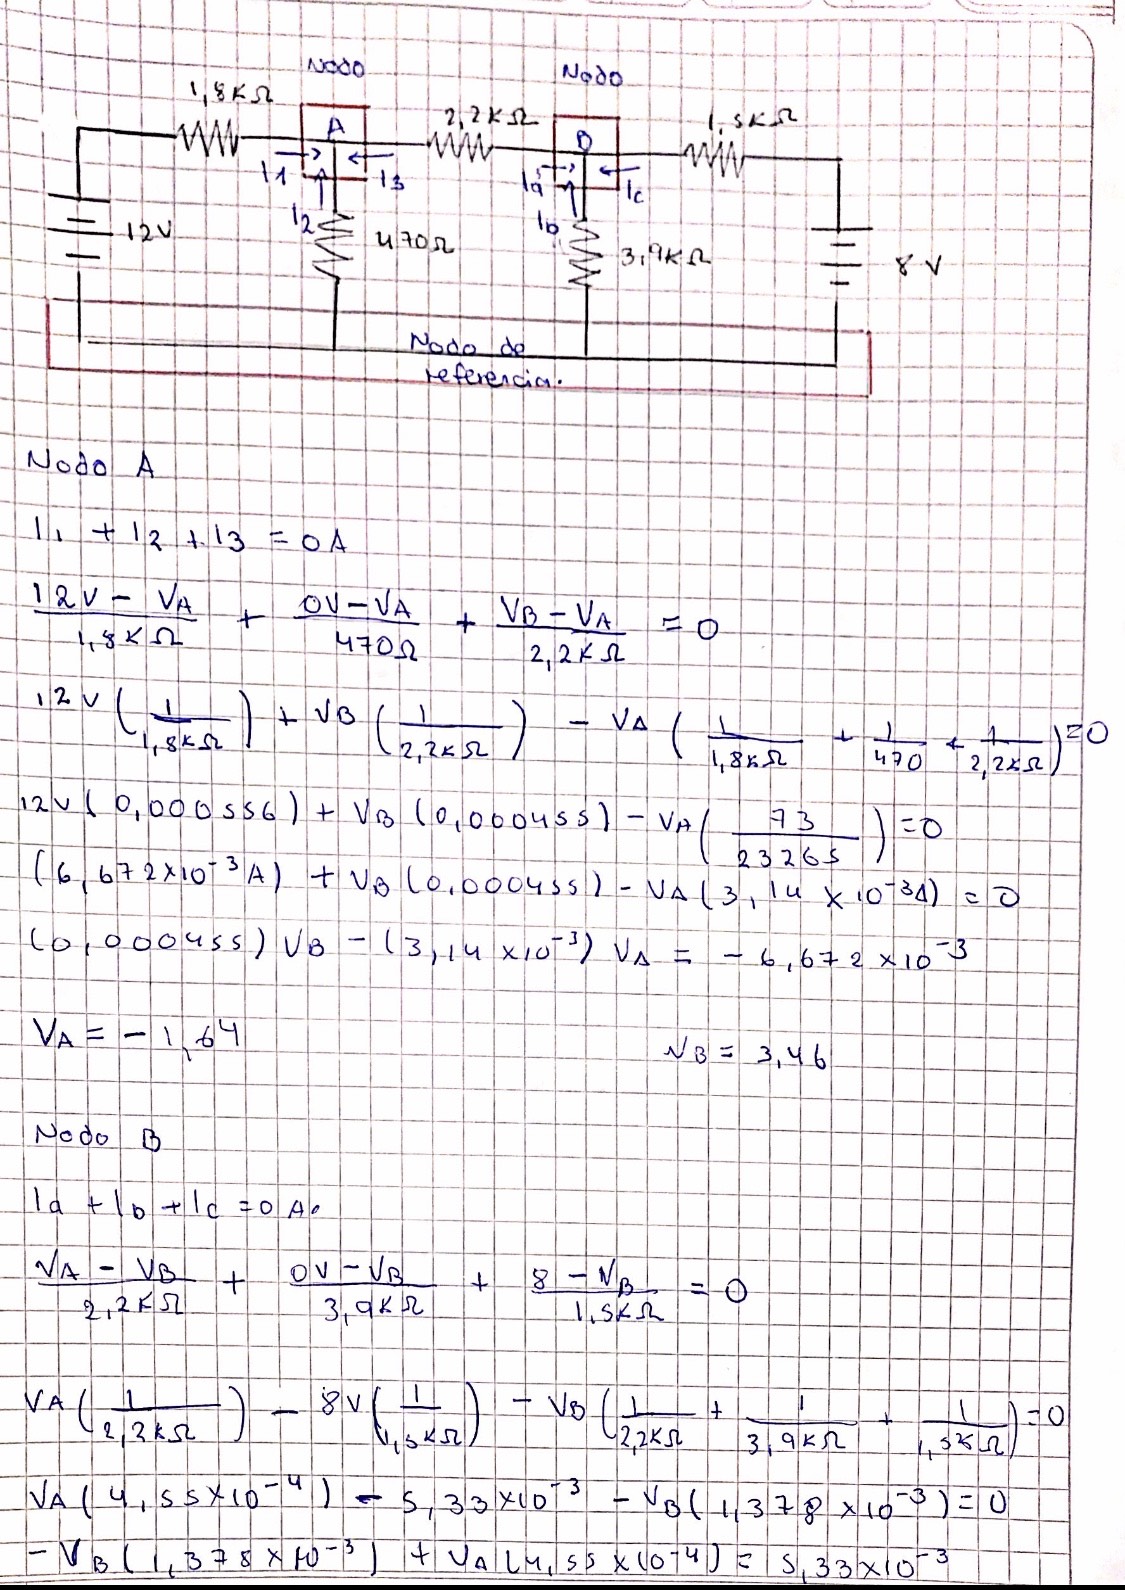 Nodo Nodo
1,8KΩ A 2,2KΩ B 1,5KΩ
I1 I3 Ia Ic
I2 Ib
12V 470Ω 3,9KΩ 8 V
Nodo de
referencia.
Nodo A
I1 + I2 + I3 = 0A
12V - VA / 1,8KΩ + 0V - VA / 470Ω + VB - VA / 2,2KΩ = 0
12V (1 / 1,8KΩ) + VB (1 / 2,2KΩ) - VA (1 / 1,8KΩ + 1 / 470 + 1 / 2,2KΩ) = 0
12V (0,000556) + VB (0,000455) - VA (73 / 23265) = 0
(6,672x10^-3 A) + VB (0,000455) - VA (3,14 x 10^-3 A) = 0
(0,000455) VB - (3,14 x10^-3) VA = - 6,672 x10^-3
VA = - 1,64 VB = 3,46
Nodo B
Ia + Ib + Ic = 0 A.
VA - VB / 2,2KΩ + 0V - VB / 3,9KΩ + 8 - VB / 1,5KΩ = 0
VA (1 / 2,2KΩ) - 8V (1 / 1,5KΩ) - VB (1 / 2,2KΩ + 1 / 3,9KΩ + 1 / 1,5KΩ) = 0
VA (4,55x10^-4) - 5,33x10^-3 - VB (1,378 x10^-3) = 0
- VB (1,378 x 10^-3) + VA (4,55 x 10^-4) = 5,33x10^-3